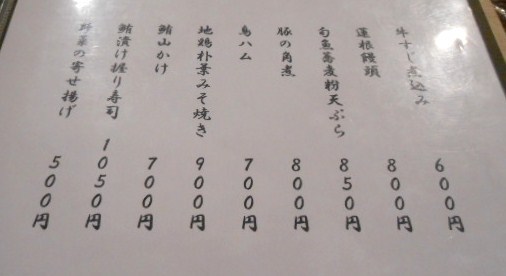 牛すじ煮込み 600円
蓮根饅頭 800円
旬魚蕎麦粉天ぷら 850円
豚の角煮 800円
鳥ハム 700円
地鶏朴葉みそ焼き 900円
鮪山かけ 700円
鮪漬け握り寿司 1050円
野菜の寄せ揚げ 500円